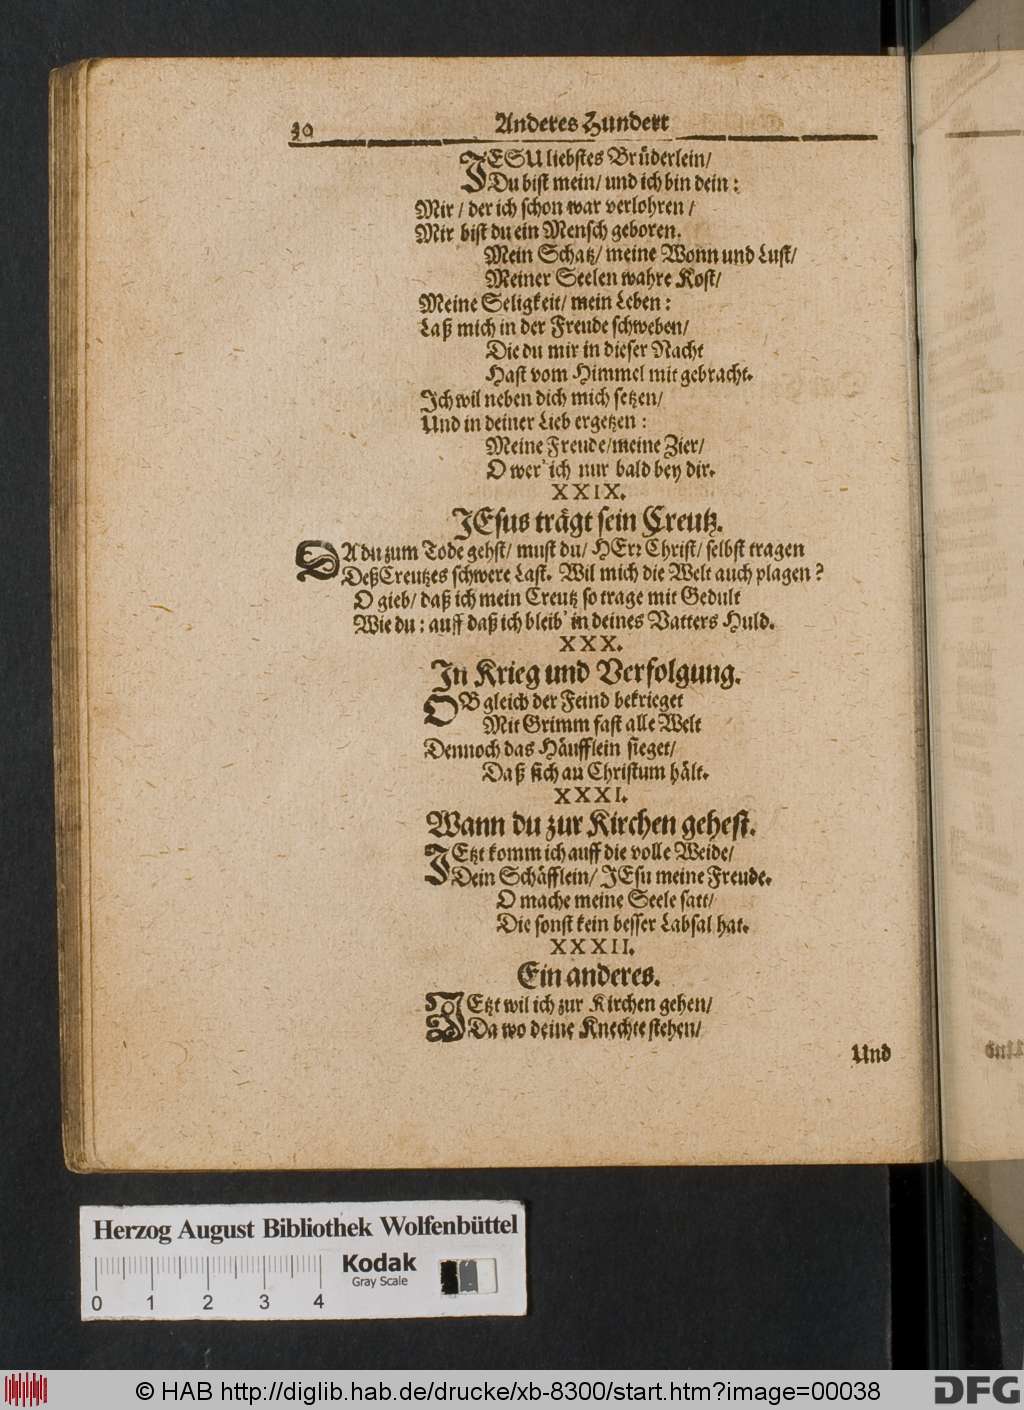 30
Anderes Hundert
JESU liebstes Brüderlein/
Du bist mein/ und ich bin dein:
Mir / der ich schon war verlohren /
Mir bist du ein Mensch geboren.
Mein Schatz/ meine Wonn und Lust/
Meiner Seelen wahre Kost/
Meine Seligkeit/ mein Leben:
Laß mich in der Freude schweben/
Die du mir in dieser Nacht
Hast vom Himmel mit gebracht.
Ich wil neben dich mich setzen/
Und in deiner Lieb ergetzen:
Meine Freude/ meine Zier/
O wer' ich nur bald bey dir.
XXIX.
JEsus trägt sein Creutz.
DA du zum Tode gehst/ must du/ HErr Christ/ selbst tragen
Deß Creutzes schwere Last. Wil mich die Welt auch plagen?
O gieb/ daß ich mein Creutz so trage mit Gedult
Wie du: auff daß ich bleib' in deines Vatters Huld.
XXX.
In Krieg und Verfolgung.
OB gleich der Feind bekrieget
Mit Grimm fast alle Welt
Dennoch das Häufflein sieget/
Daß sich an Christum hält.
XXXI.
Wann du zur Kirchen gehest.
JEtzt komm ich auff die volle Weide/
Dein Schäfflein/ JEsu meine Freude.
O mache meine Seele satt/
Die sonst kein besser Labsal hat.
XXXII.
Ein anderes.
JEtzt wil ich zur Kirchen gehen/
Da wo deine Knechte stehen/
Und
Herzog August Bibliothek Wolfenbüttel
Kodak
Gray Scale
0 1 2 3 4
© HAB http://diglib.hab.de/drucke/xb-8300/start.htm?image=00038
DFG